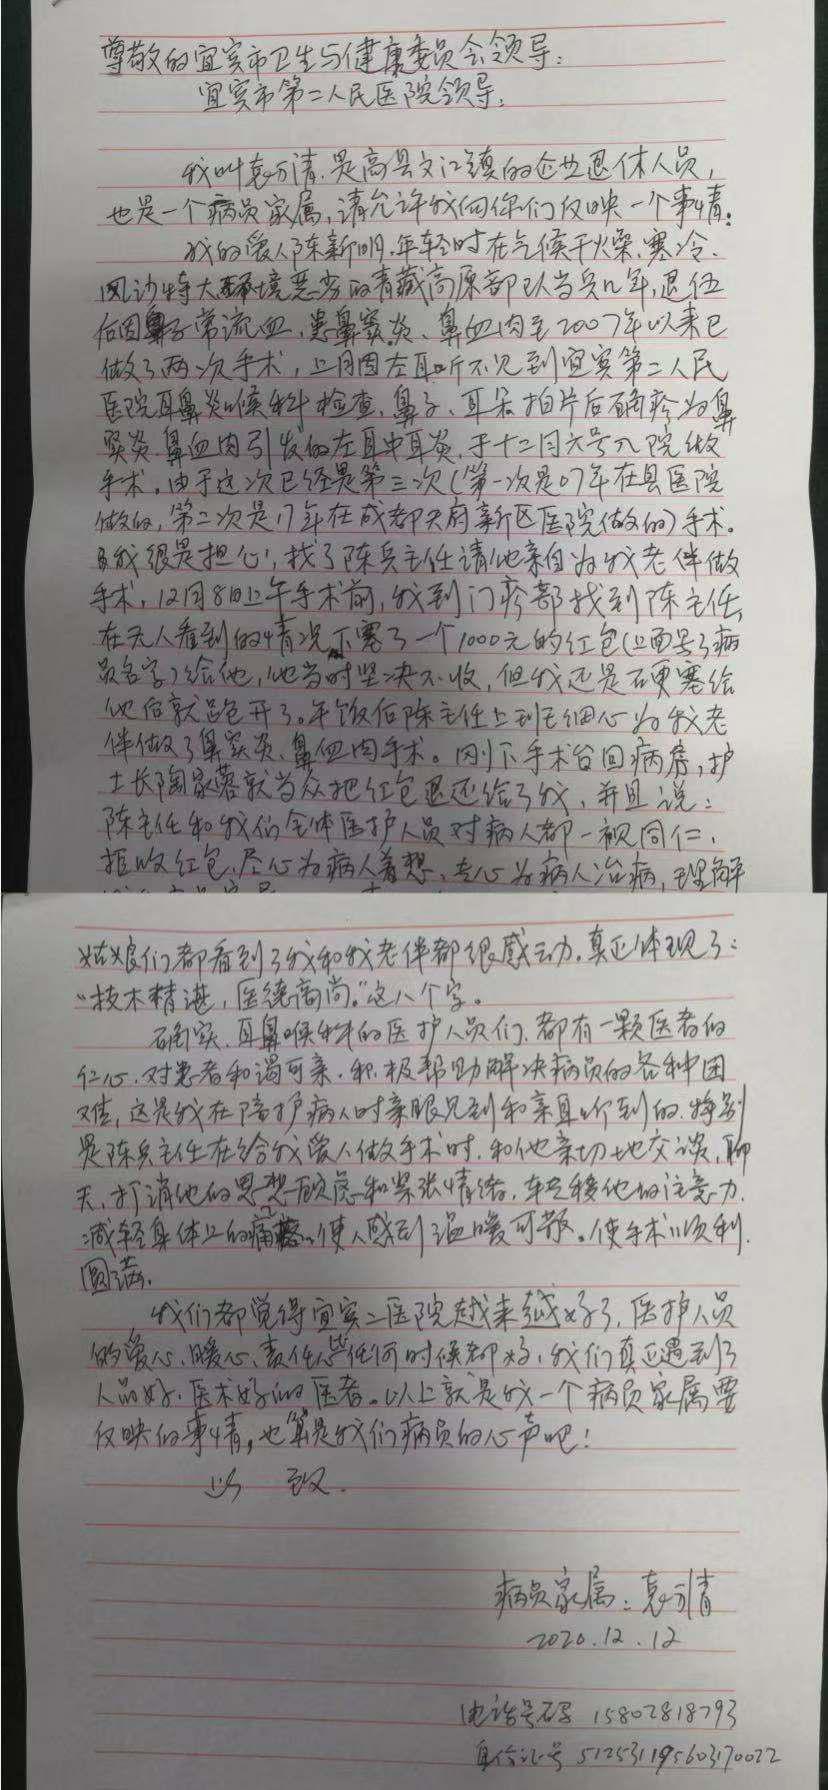 尊敬的宜宾市卫生与健康委员会领导：
宜宾市第二人民医院领导：
我叫袁万清，是高县文江镇的企业退休人员，
也是一个病员家属，请允许我向你们反映一个事情。
我的爱人陈新明，年轻时在气候干燥、寒冷、
风沙特大环境恶劣的青藏高原部队当兵几年，退伍
后因鼻子常流血，患鼻窦炎、鼻血肉至2007年以来已
做了两次手术，上月因左耳听不见到宜宾第二人民
医院耳鼻炎喉科检查，鼻子、耳朵拍片后确疹为鼻
窦炎、鼻血肉引发的左耳中耳炎，于十二月六号入院做
手术。由于这次已经是第三次（第一次是07年在县医院
做的，第二次是17年在成都天府新区医院做的）手术。
我很是担心，找了陈兵主任请他亲自为我老伴做
手术，12月8日上午手术前，我到门疹部找到陈主任，
在无人看到的情况下塞了一个1000元的红包（上面写了病
员名字）给他，他当时坚决不收，但我还是硬塞给
他后就跑开了。午饭后陈主任上到手细心为我老
伴做了鼻窦炎、鼻血肉手术。刚下手术台回病房，护
士长陶家蓉就当众把红包退还给了我，并且说：
陈主任和我们全体医护人员对病人都一视同仁，
拒收红包，尽心为病人着想，专心为病人治病，理解
姑娘们都看到了我和我老伴都很感动。真正体现了：
“技术精湛，医德高尚。”这八个字。
确实，耳鼻喉科的医护人员们，都有一颗医者的
仁心，对患者和谒可亲，积极帮助解决病员的各种困
难，这是我在陪护病人时亲眼见到和亲耳听到的，特别
是陈兵主任在给我爱人做手术时，和他亲切地交谈，聊
天，打消他的思想顾虑和紧张情绪，转移他的注意力，
减轻身体上的痛，使人感到温暖可敬。使手术顺利，
圆满。
我们都觉得宜宾二医院越来越好了，医护人员
的爱心，暖心，责任心任何时候都好，我们真正遇到了
人品好，医术好的医者。以上就是我一个病员家属要
反映的事情，也算是我们病员的心声吧！
此致。
病员家属：袁万清
2020.12.12
电话号码 15802818793
身份证号 512531195603170022